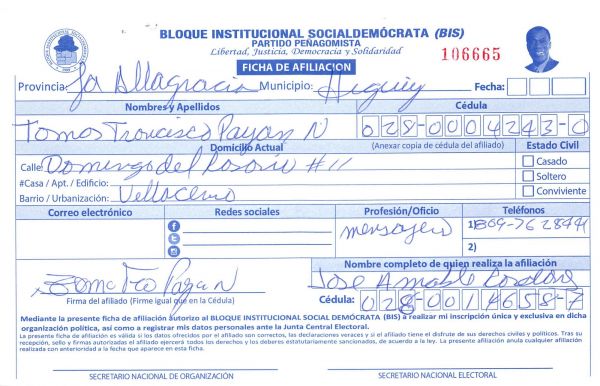 BLOQUE INSTITUCIONAL SOCIALDEMÓCRATA (BIS)
PARTIDO PEÑAGOMISTA
Libertad, Justicia, Democracia y Solidaridad
FICHA DE AFILIACION
106665
Provincia: La Altagracia Municipio: Higüey Fecha:
Nombres y Apellidos Cédula
Tomas Francisco Payan N 028-0004243-0
Domicilio Actual (Anexar copia de cédula del afiliado) Estado Civil
Calle: Domingo del Rosario #11 Casado
#Casa / Apt. / Edificio: Soltero
Barrio / Urbanización: Villa Cerro Conviviente
Correo electrónico Redes sociales Profesión/Oficio Teléfonos
mensajero 1) 809-76
2)
Nombre completo de quien realiza la afiliación
Payan N Jose Amable
Firma del afiliado (Firme igual que en la Cédula) Cédula: 028-0014658-7
Mediante la presente ficha de afiliación autorizo al BLOQUE INSTITUCIONAL SOCIAL DEMÓCRATA (BIS) a realizar mi inscripción única y exclusiva en dicha
organización política, así como a registrar mis datos personales ante la Junta Central Electoral.
La presente ficha de afiliación es válida si los datos ofrecidos por el afiliado son correctos, las declaraciones veraces y si el afiliado tiene el disfrute de sus derechos civiles y políticos. Tras su
recepción, sello y firmas autorizadas el afiliado ejercerá todos los derechos y los deberes estatutariamente sancionados, de acuerdo a la ley. La presente afiliación anula cualquier afiliación
realizada con anterioridad a la fecha que aparece en esta ficha.
SECRETARIO NACIONAL DE ORGANIZACIÓN SECRETARIO NACIONAL ELECTORAL